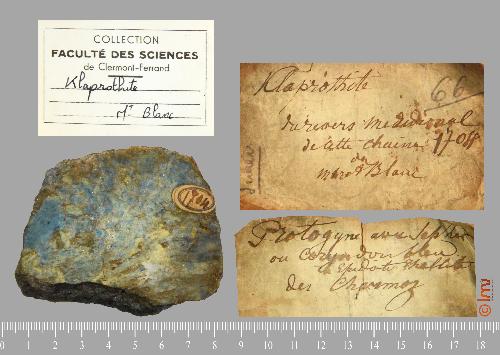 COLLECTION
FACULTÉ DES SCIENCES
de Clermont-Ferrand
Klaprothite
Mt Blanc
Klaprothite
66
du revers méridional
de cette chaine
du
mont Blanc
Protogyne avec
ou corindon bleu
Epidote
des Chaamoz
0 1 2 3 4 5 6 7 8 9 10 11 12 13 14 15 16 17 18